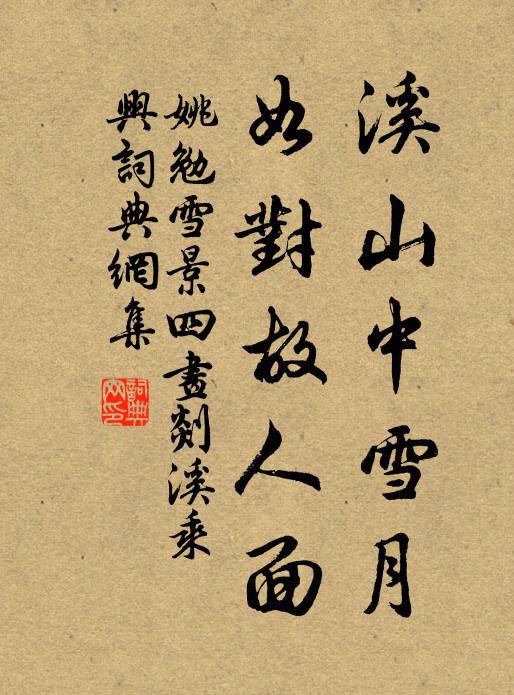 溪山中雪月
如對故人面
姚勉雪景四畫剡溪乘
興詞典網集
詞典
網印